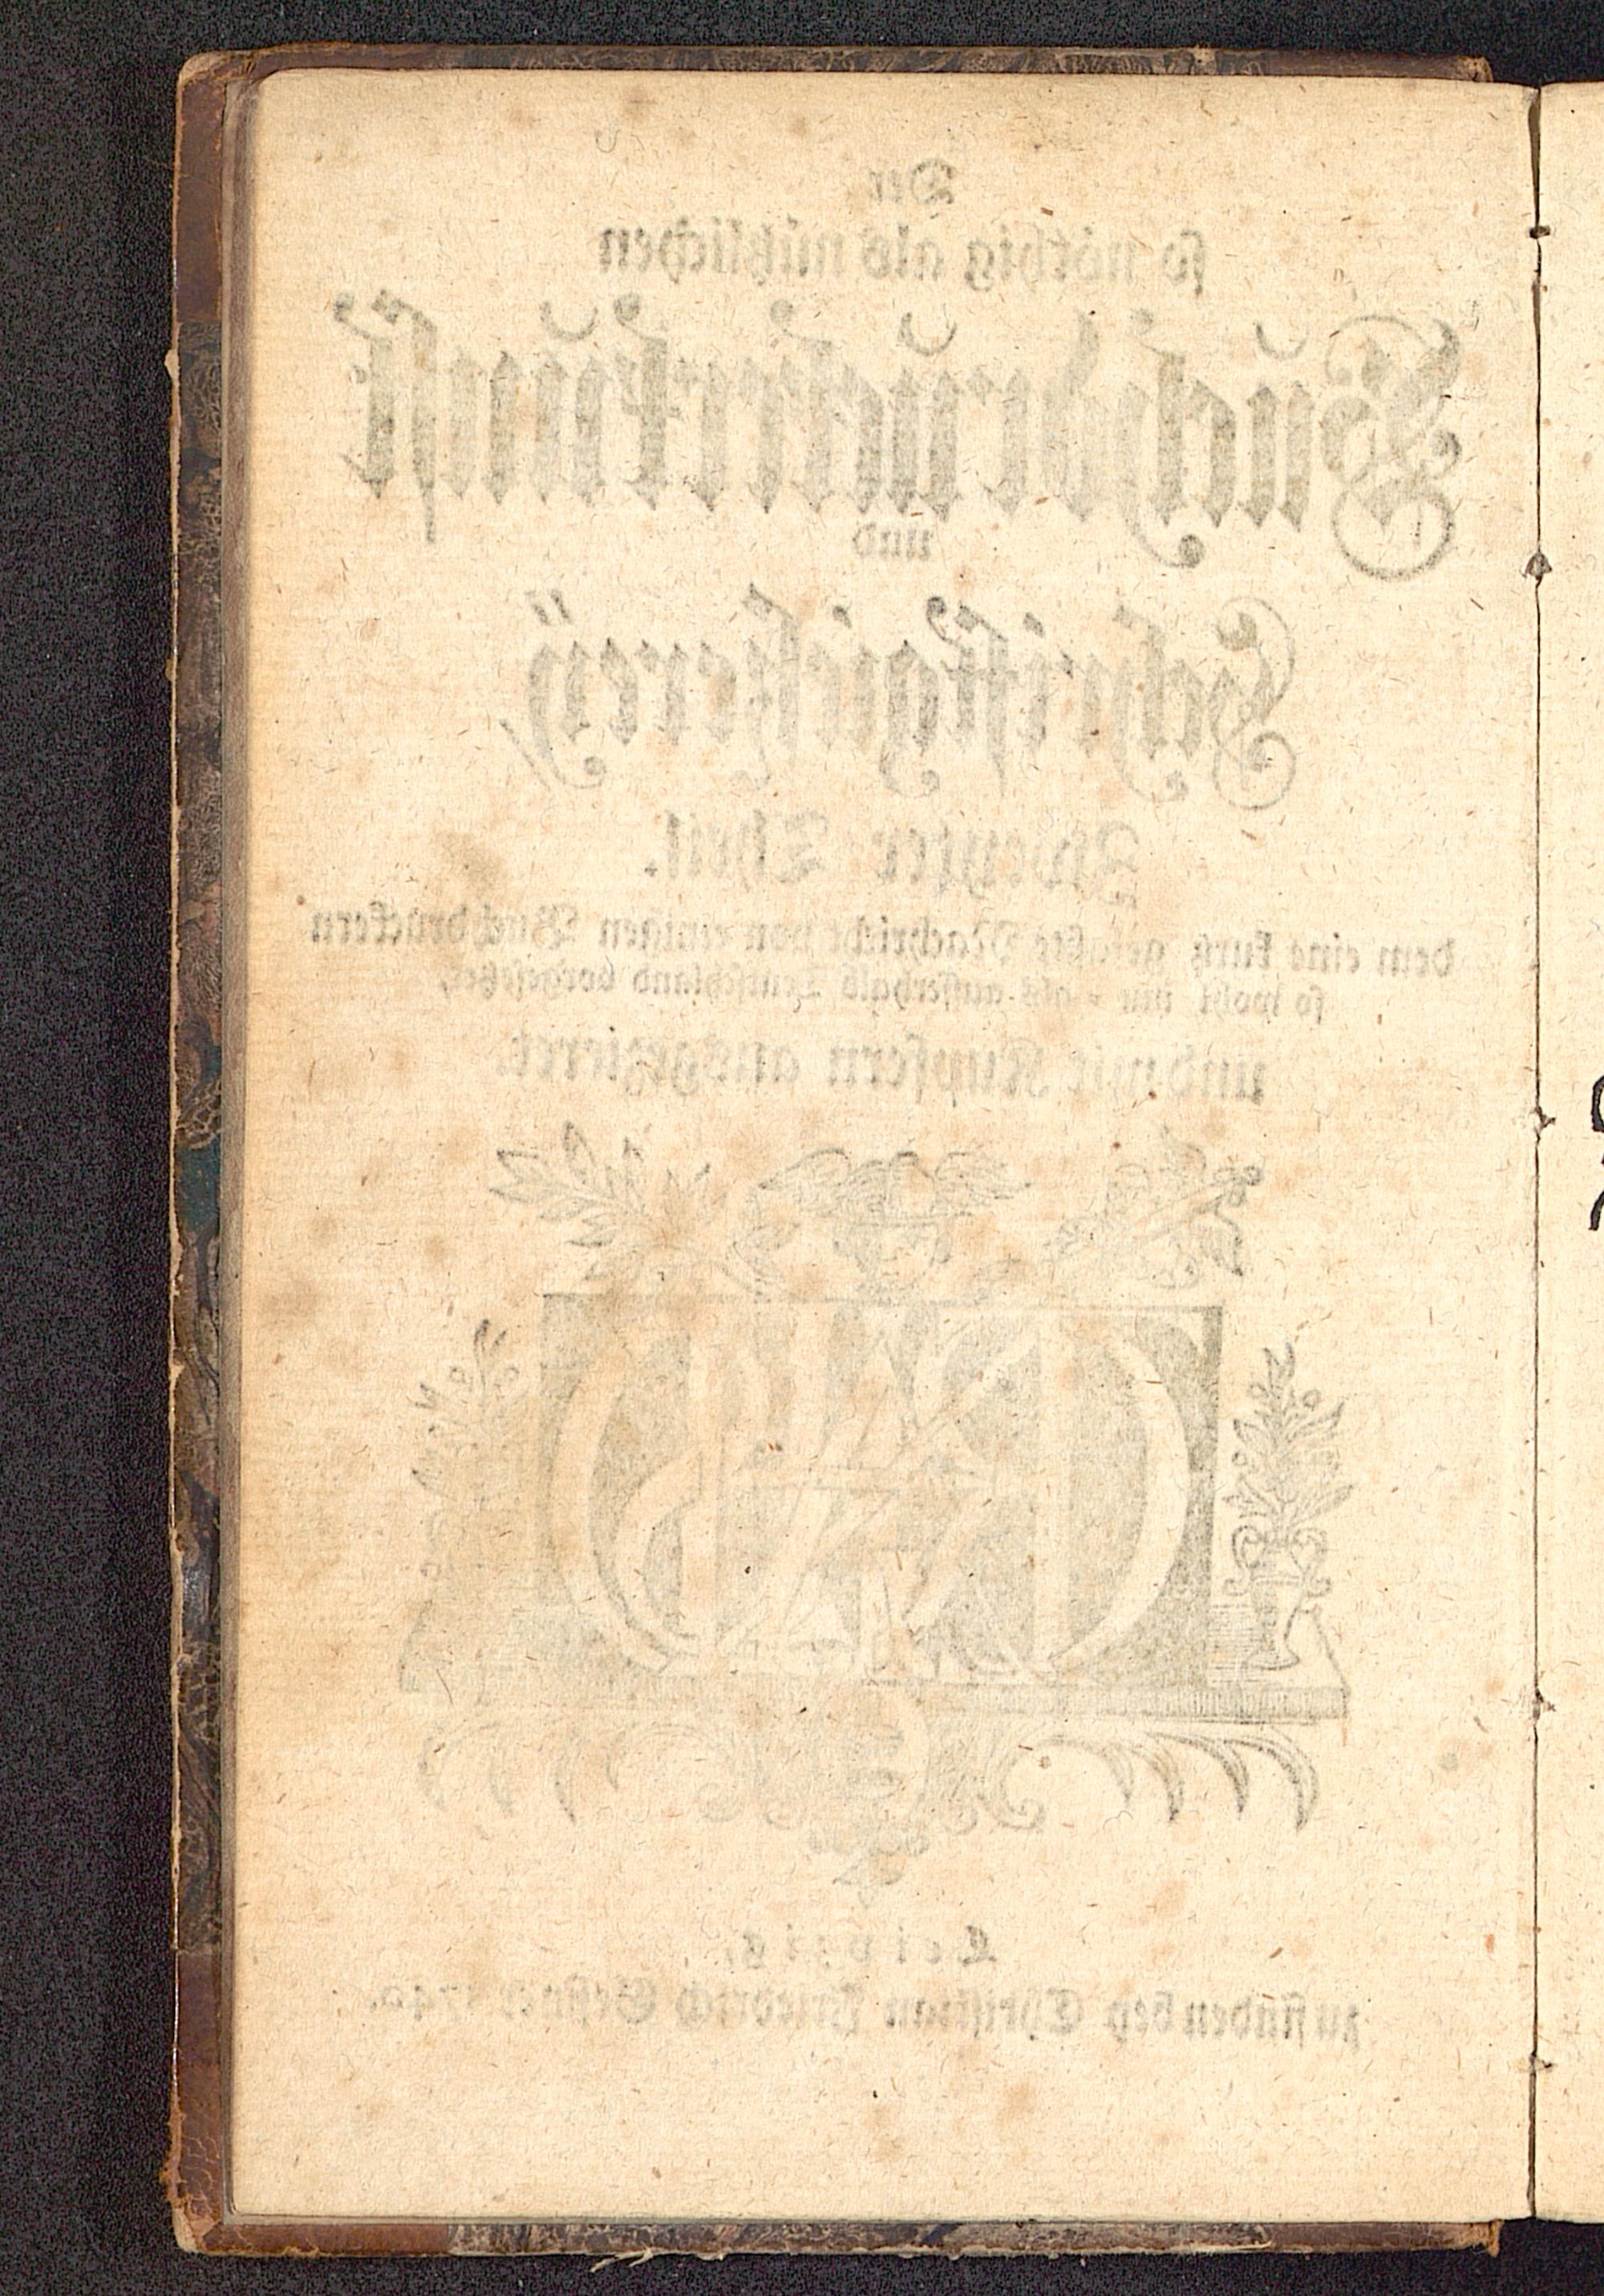 Der
so nöthig als nützlichen
Buchdruckerkunst
und
Schriftgiesserey,
Zweyter Theil.
dem eine kurtz gefaßte Nachricht von einigen Buchdruckern
so wohl inn- als ausserhalb Teutschland vorgesetzet,
und mit Kupfern ausgezieret.
Leipzig,
zu finden bey Christian Friedrich Geßner 1740.